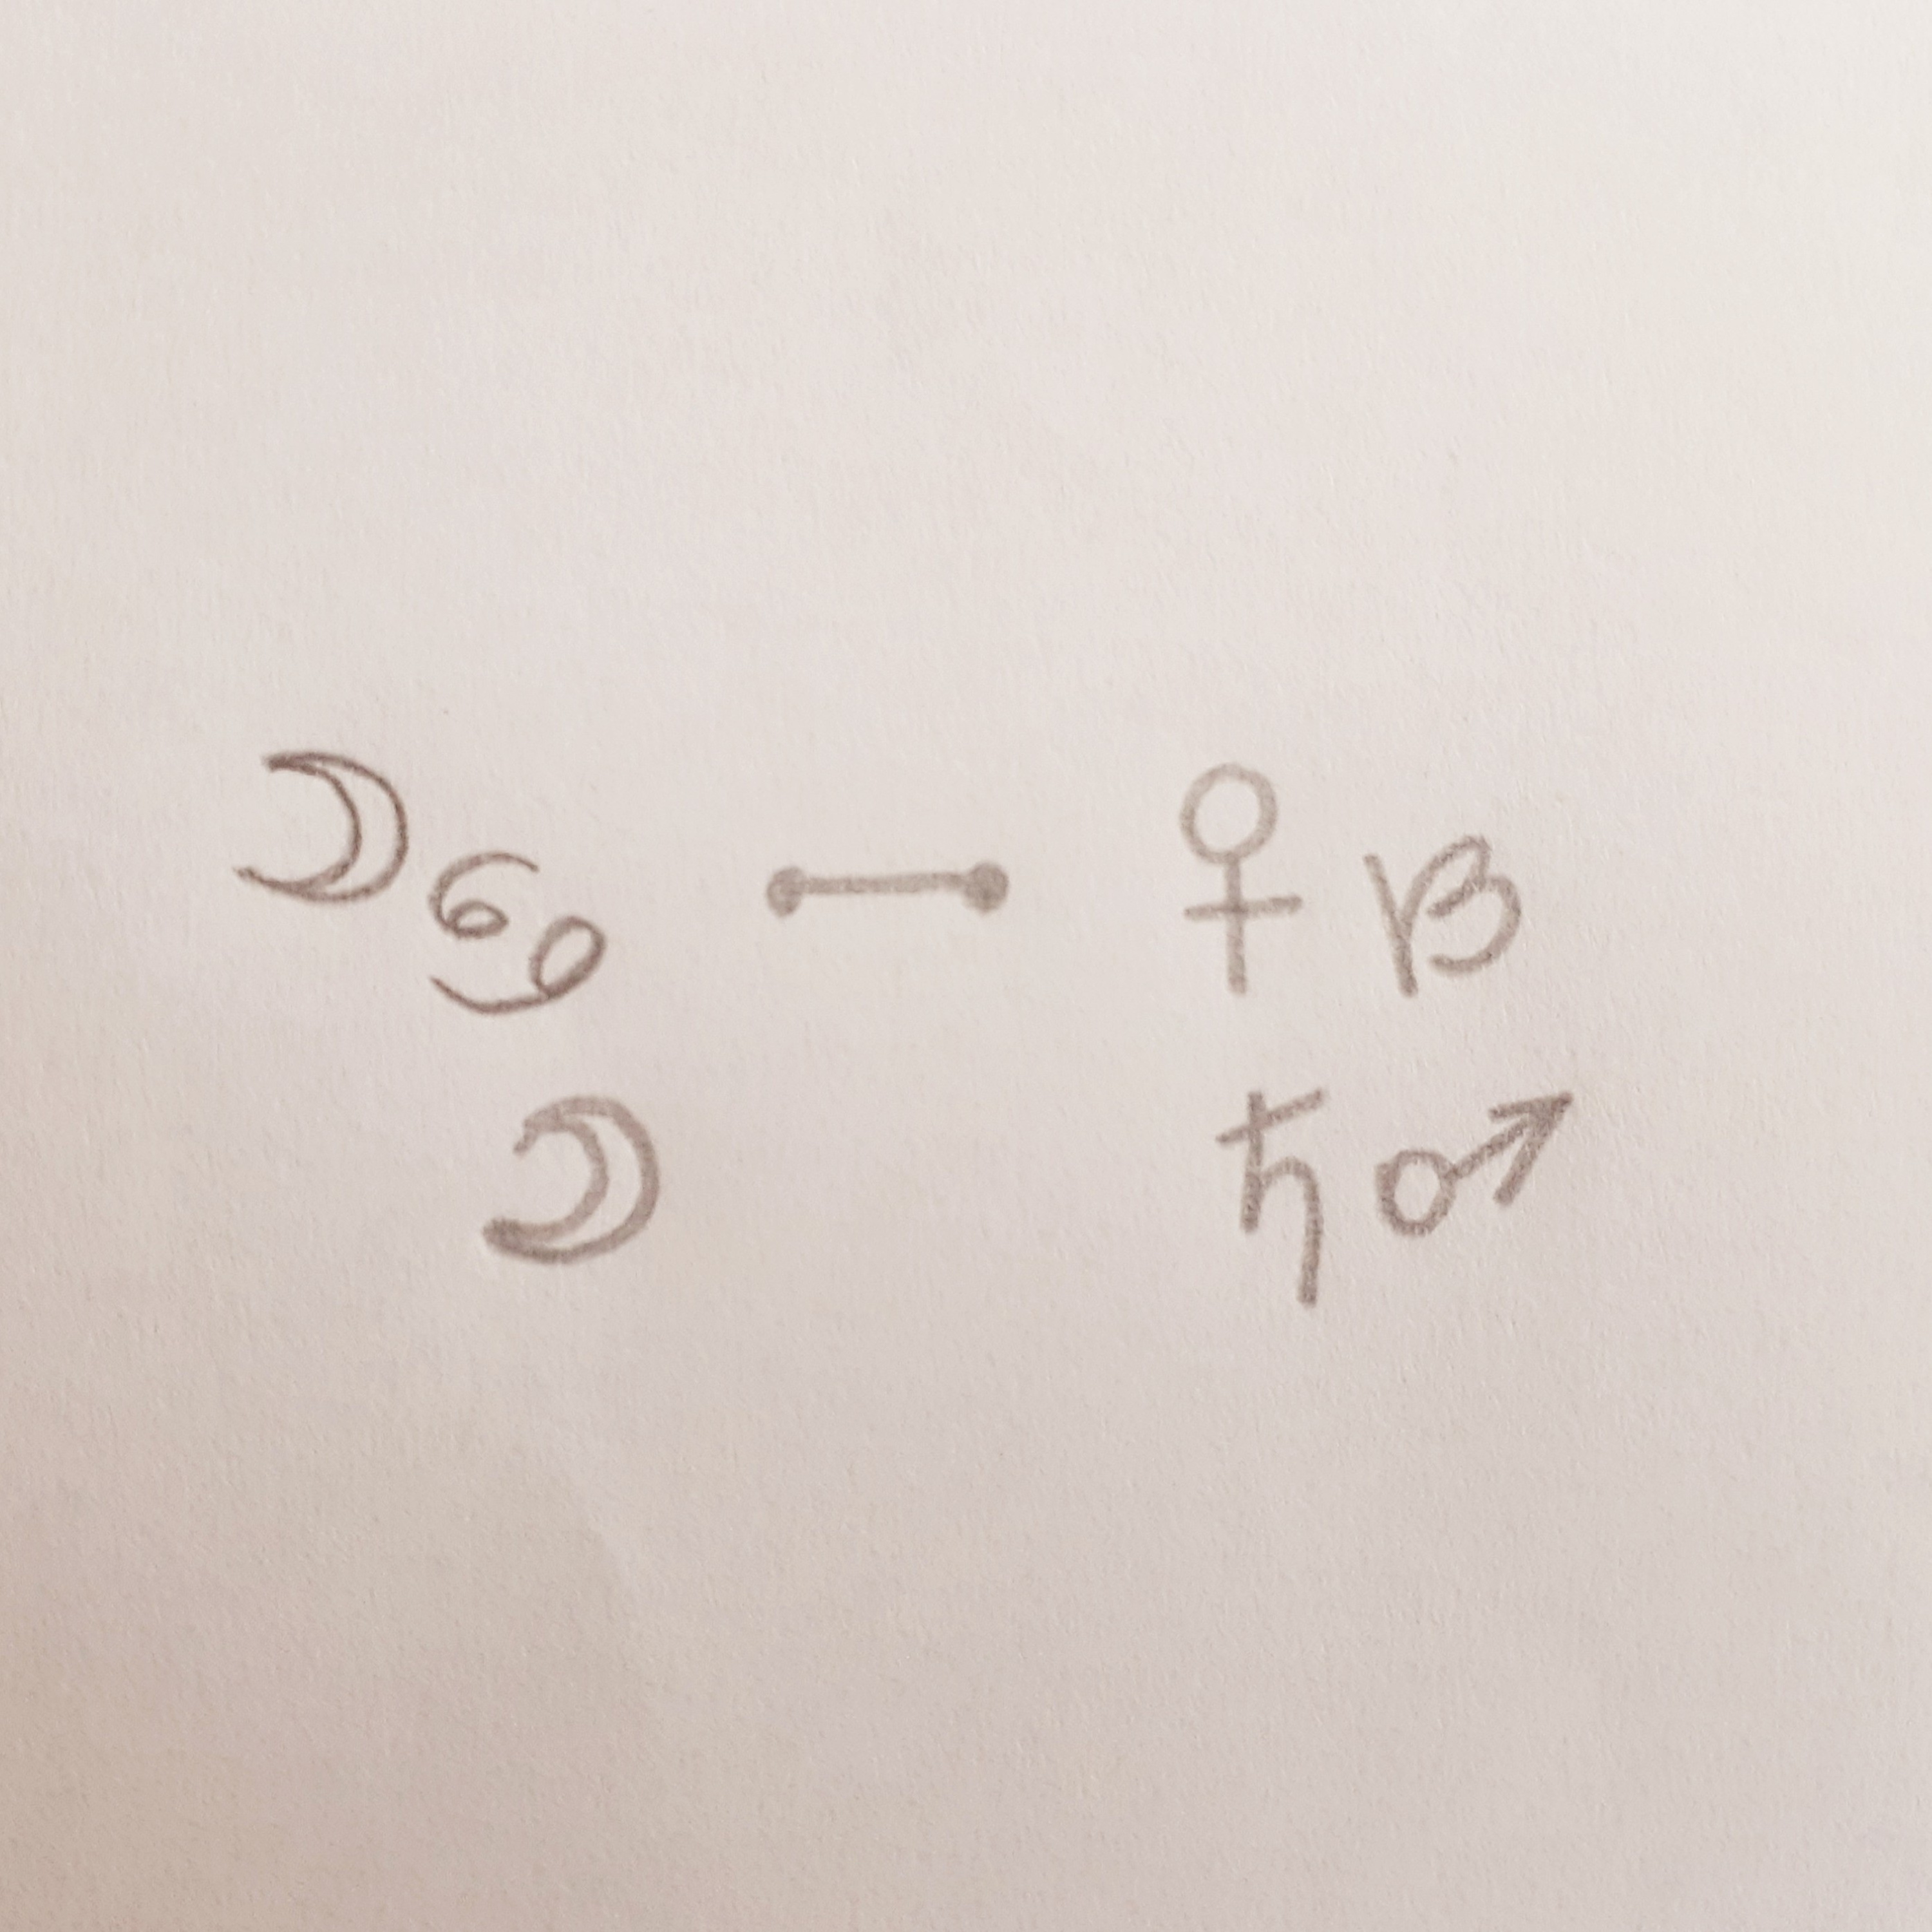 ☽♋ •—• ♀♑
☽ ♄♂